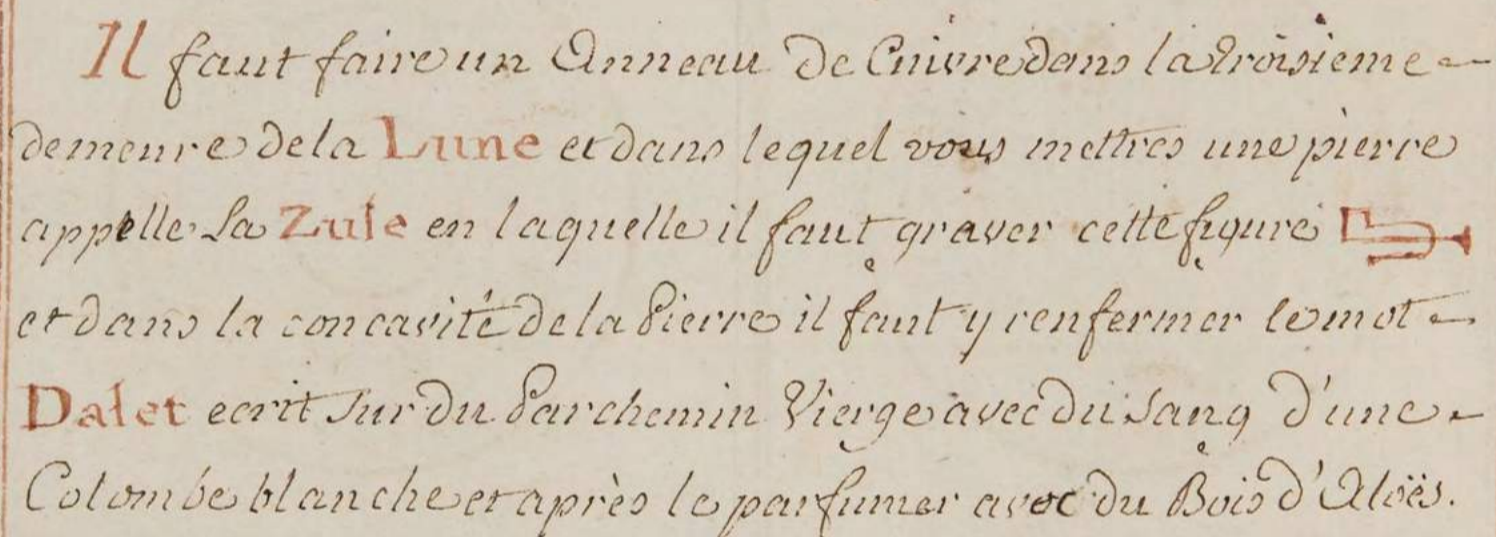 Il faut faire un Anneau de Cuivre dans la troisieme
demeure de la Lune et dans lequel vous mettres une pierre
appelle la Zule en laquelle il faut graver cette figure
et dans la concavité de la Pierre il faut y renfermer le mot
Dalet ecrit sur du Parchemin Vierge avec du sang d'une
Colombe blanche et après le parfumer avec du Bois d'Aloës.